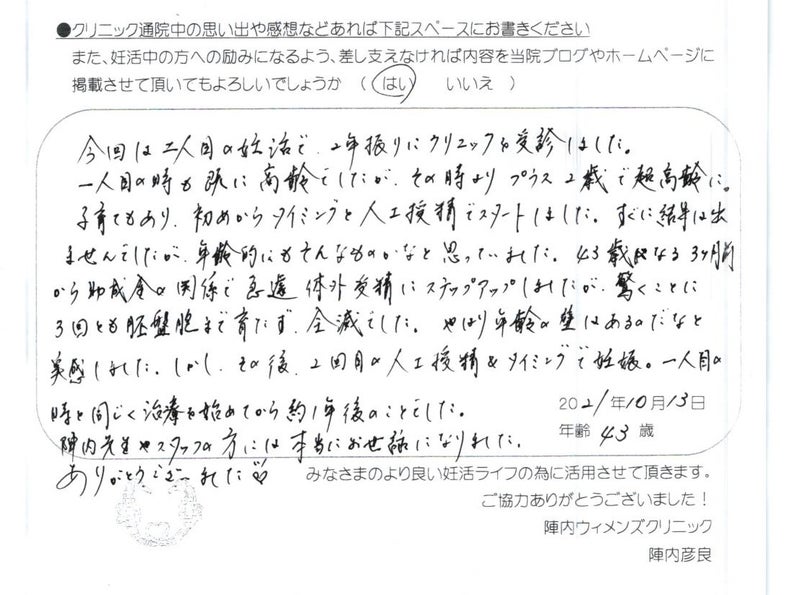 ●クリニック通院中の思い出や感想などあれば下記スペースにお書きください
また、妊活中の方への励みになるよう、差し支えなければ内容を当院ブログやホームページに
掲載させて頂いてもよろしいでしょうか ( はい いいえ )
今回は二人目の妊活で、2年振りにクリニックを受診しました。
一人目の時も既に高齢でしたが、その時よりプラス2歳で超高齢に。
子育てもあり、初めからタイミングと人工授精でスタートしました。すぐに結果は出
ませんでしたが、年齢的にもそんなものかなと思っていました。43歳になる3ヶ月前
から助成金の関係で急遽体外受精にステップアップしましたが、驚くことに
3回とも胚盤胞まで育たず、全滅でした。やはり年齢の壁はあるのだなと
実感しました。しかし、その後、2回目の人工授精&タイミングで妊娠。一人目の
時と同じく治療を始めてから約1年後のことでした。
陣内先生やスタッフの方には本当にお世話になりました。
ありがとうございました♡
2021年10月13日
年齢 43 歳
みなさまのより良い妊活ライフの為に活用させて頂きます。
ご協力ありがとうございました！
陣内ウィメンズクリニック
陣内彦良